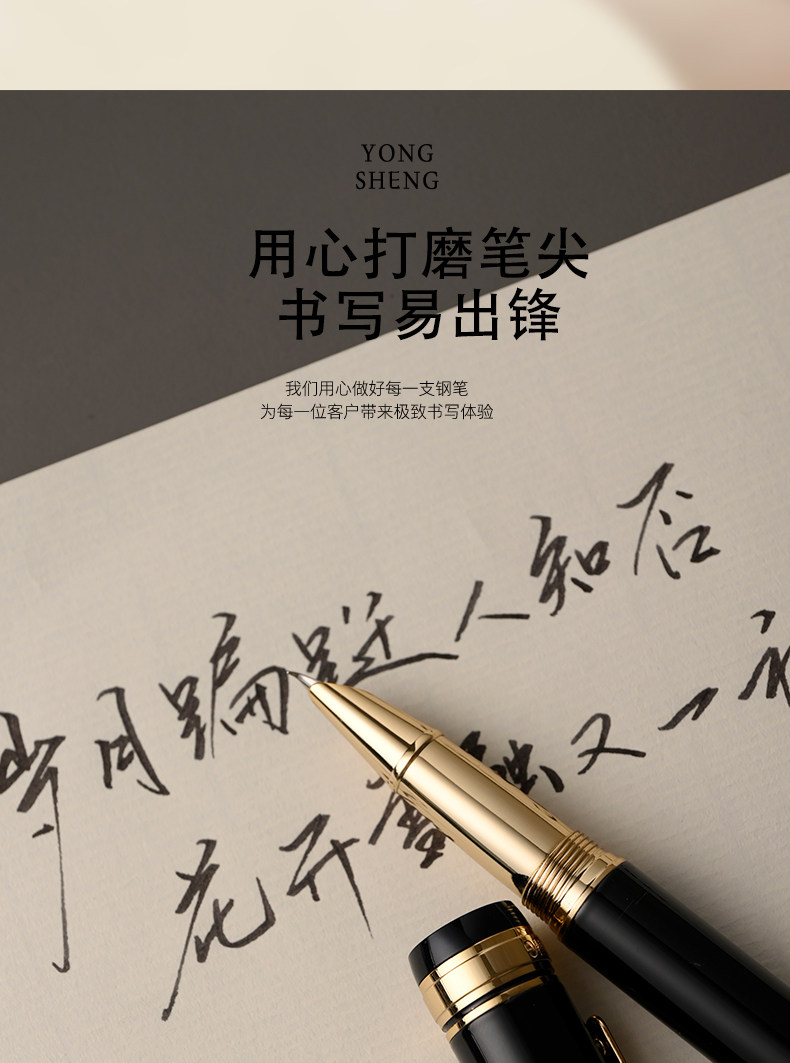 YONG
SHENG
用心打磨笔尖
书写易出锋
我们用心做好每一支钢笔
为每一位客户带来极致书写体验
岁月蹁跹人知否
花开 又一